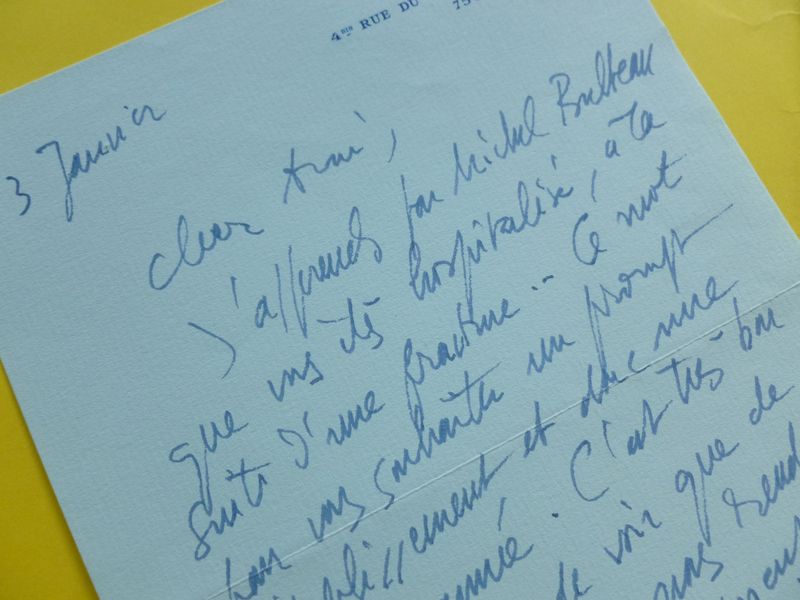 4 BIS RUE DU 750
3 Janvier
Cher Ami,
J'apprends par Michel Bulteau
que vous êtes hospitalisé, à la
suite d'une fracture.. Ce mot
pour vous souhaiter un prompt
rétablissement et donc une
année. C'est très bon
de voir que de
vous rend